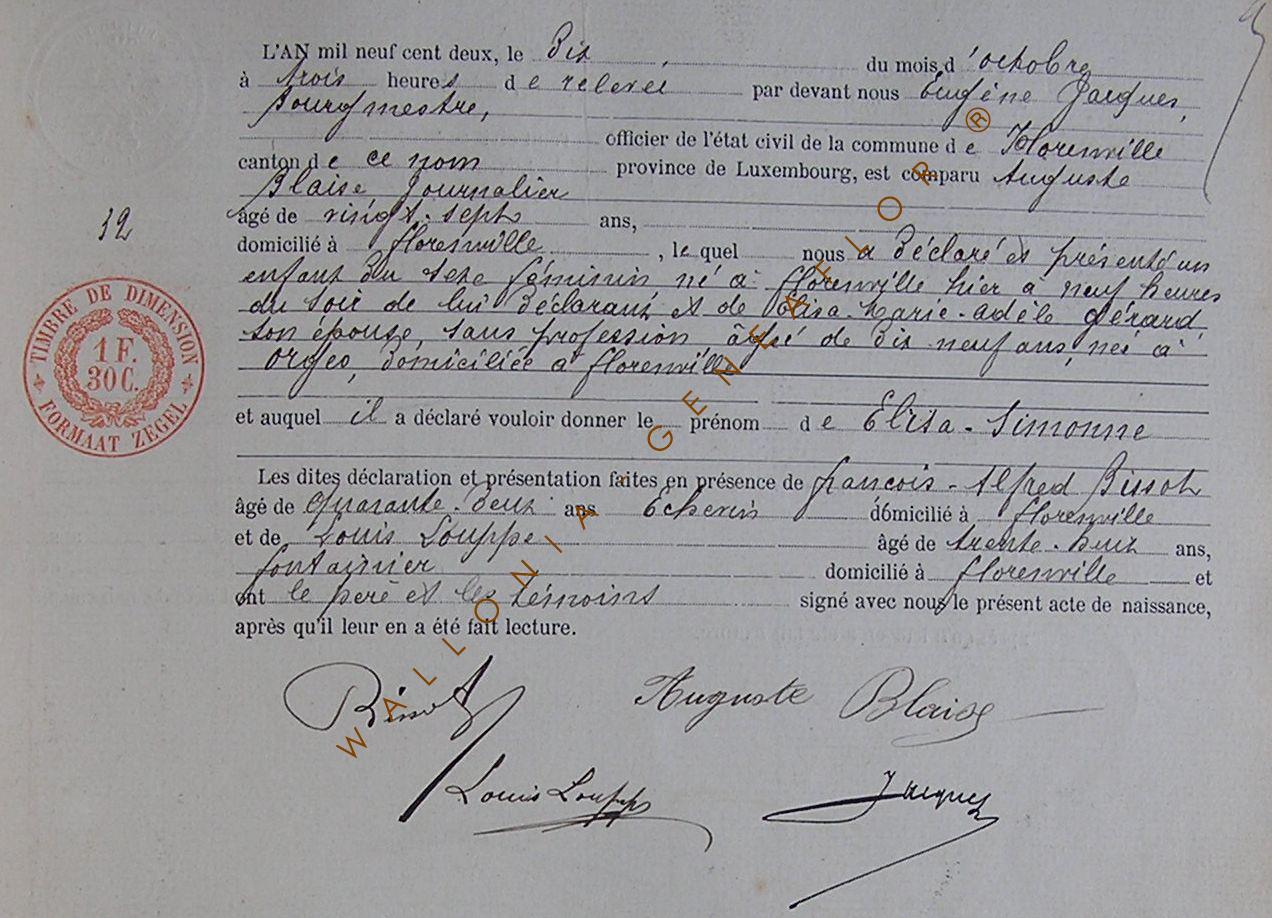 L'AN mil neuf cent deux, le Dix, du mois d'octobre
à trois heures de relevée par devant nous Eugène Jacques,
Bourgmestre,
officier de l'état civil de la commune de Florenville
canton de ce nom province de Luxembourg, est comparu Auguste
Blaise Journalier
âgé de vingt-sept ans,
32
domicilié à florenville, lequel nous a Déclaré et présenté un
enfant du sexe féminin né à florenville hier à neuf heures
du soir de lui Déclarant et de Elisa-Marie-Adèle Gérard,
son épouse, sans profession âgée de Dix neuf ans, née à
Orgeo, domiciliée à florenville
TIMBRE DE DIMENSION
1 F.
30 C.
FORMAAT ZEGEL
et auquel il a déclaré vouloir donner le prénom de Elisa-Simonne
Les dites déclaration et présentation faites en présence de françois-Alfred Bissot
âgé de quarante-deux ans Echevin domicilié à florenville
et de Louis Louppe âgé de trente-huit ans,
fontainier domicilié à florenville et
ont le père et les témoins signé avec nous le présent acte de naissance,
après qu'il leur en a été fait lecture.
Bissot Auguste Blaise
Louis Louppe Jacques
WALLONIA-GENEAFLOR®